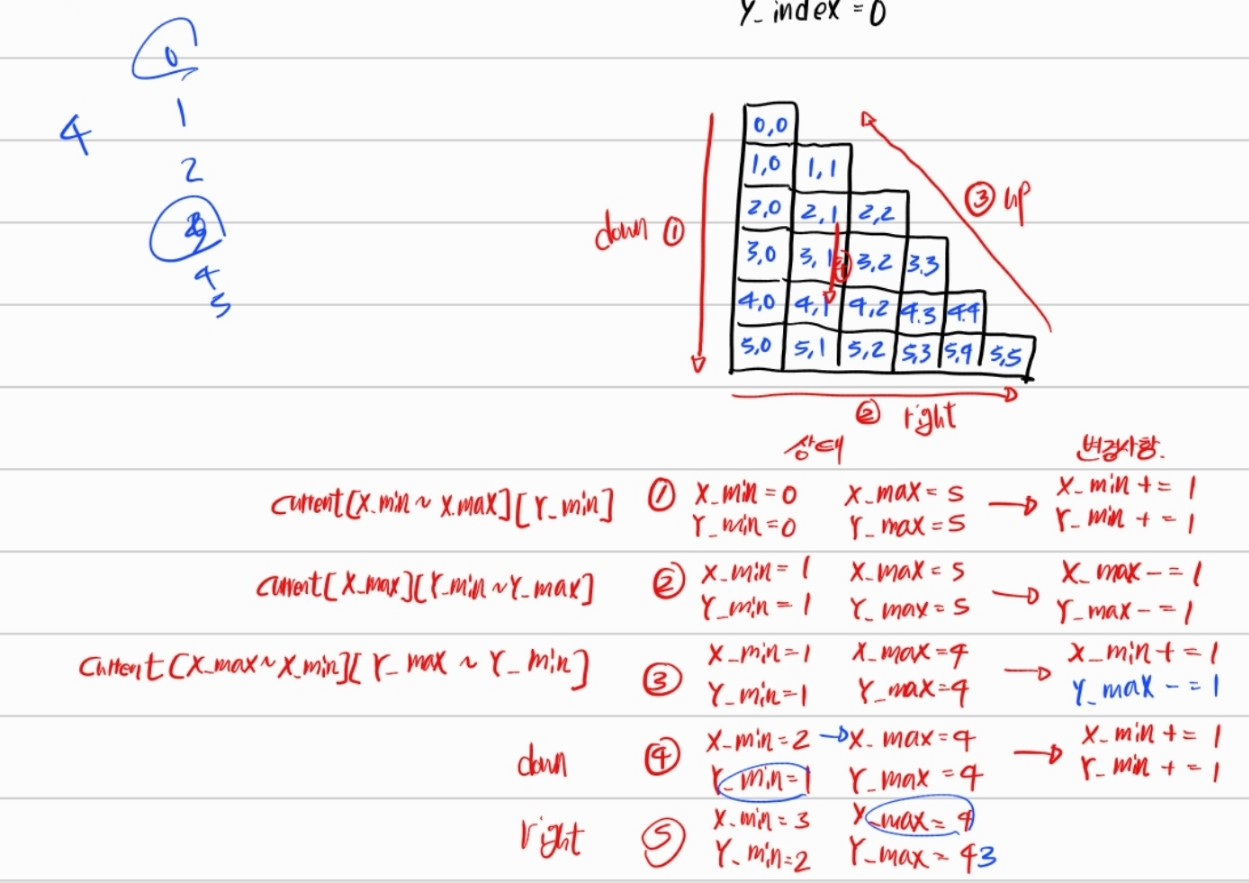 Y_index = 0
0
1
4
2
4
5
0,0
1,0 1,1
2,0 2,1 2,2
3,0 3,1 3,2 3.3
4,0 4,1 4,2 4.3 4.4
5,0 5,1 5,2 5,3 5,4 5,5
down ①
③ up
④
② right
상태 변경사항.
current[X_min ~ X_max][Y_min] ① X_min = 0 X_max = 5 → X_min += 1
Y_min = 0 Y_max = 5 Y_min += 1
current[X_max][Y_min ~ Y_max] ② X_min = 1 X_max = 5 → X_max -= 1
Y_min = 1 Y_max = 5 Y_max -= 1
current[X_max ~ X_min][Y_max ~ Y_min] ③ X_min = 1 X_max = 4 → X_min += 1
Y_min = 1 Y_max = 4 Y_max -= 1
down ④ X_min = 2 → X_max = 4 → X_min += 1
Y_min = 1 Y_max = 4 Y_min += 1
right ⑤ X_min = 3 X_max = 4
Y_min = 2 Y_max = 4 3